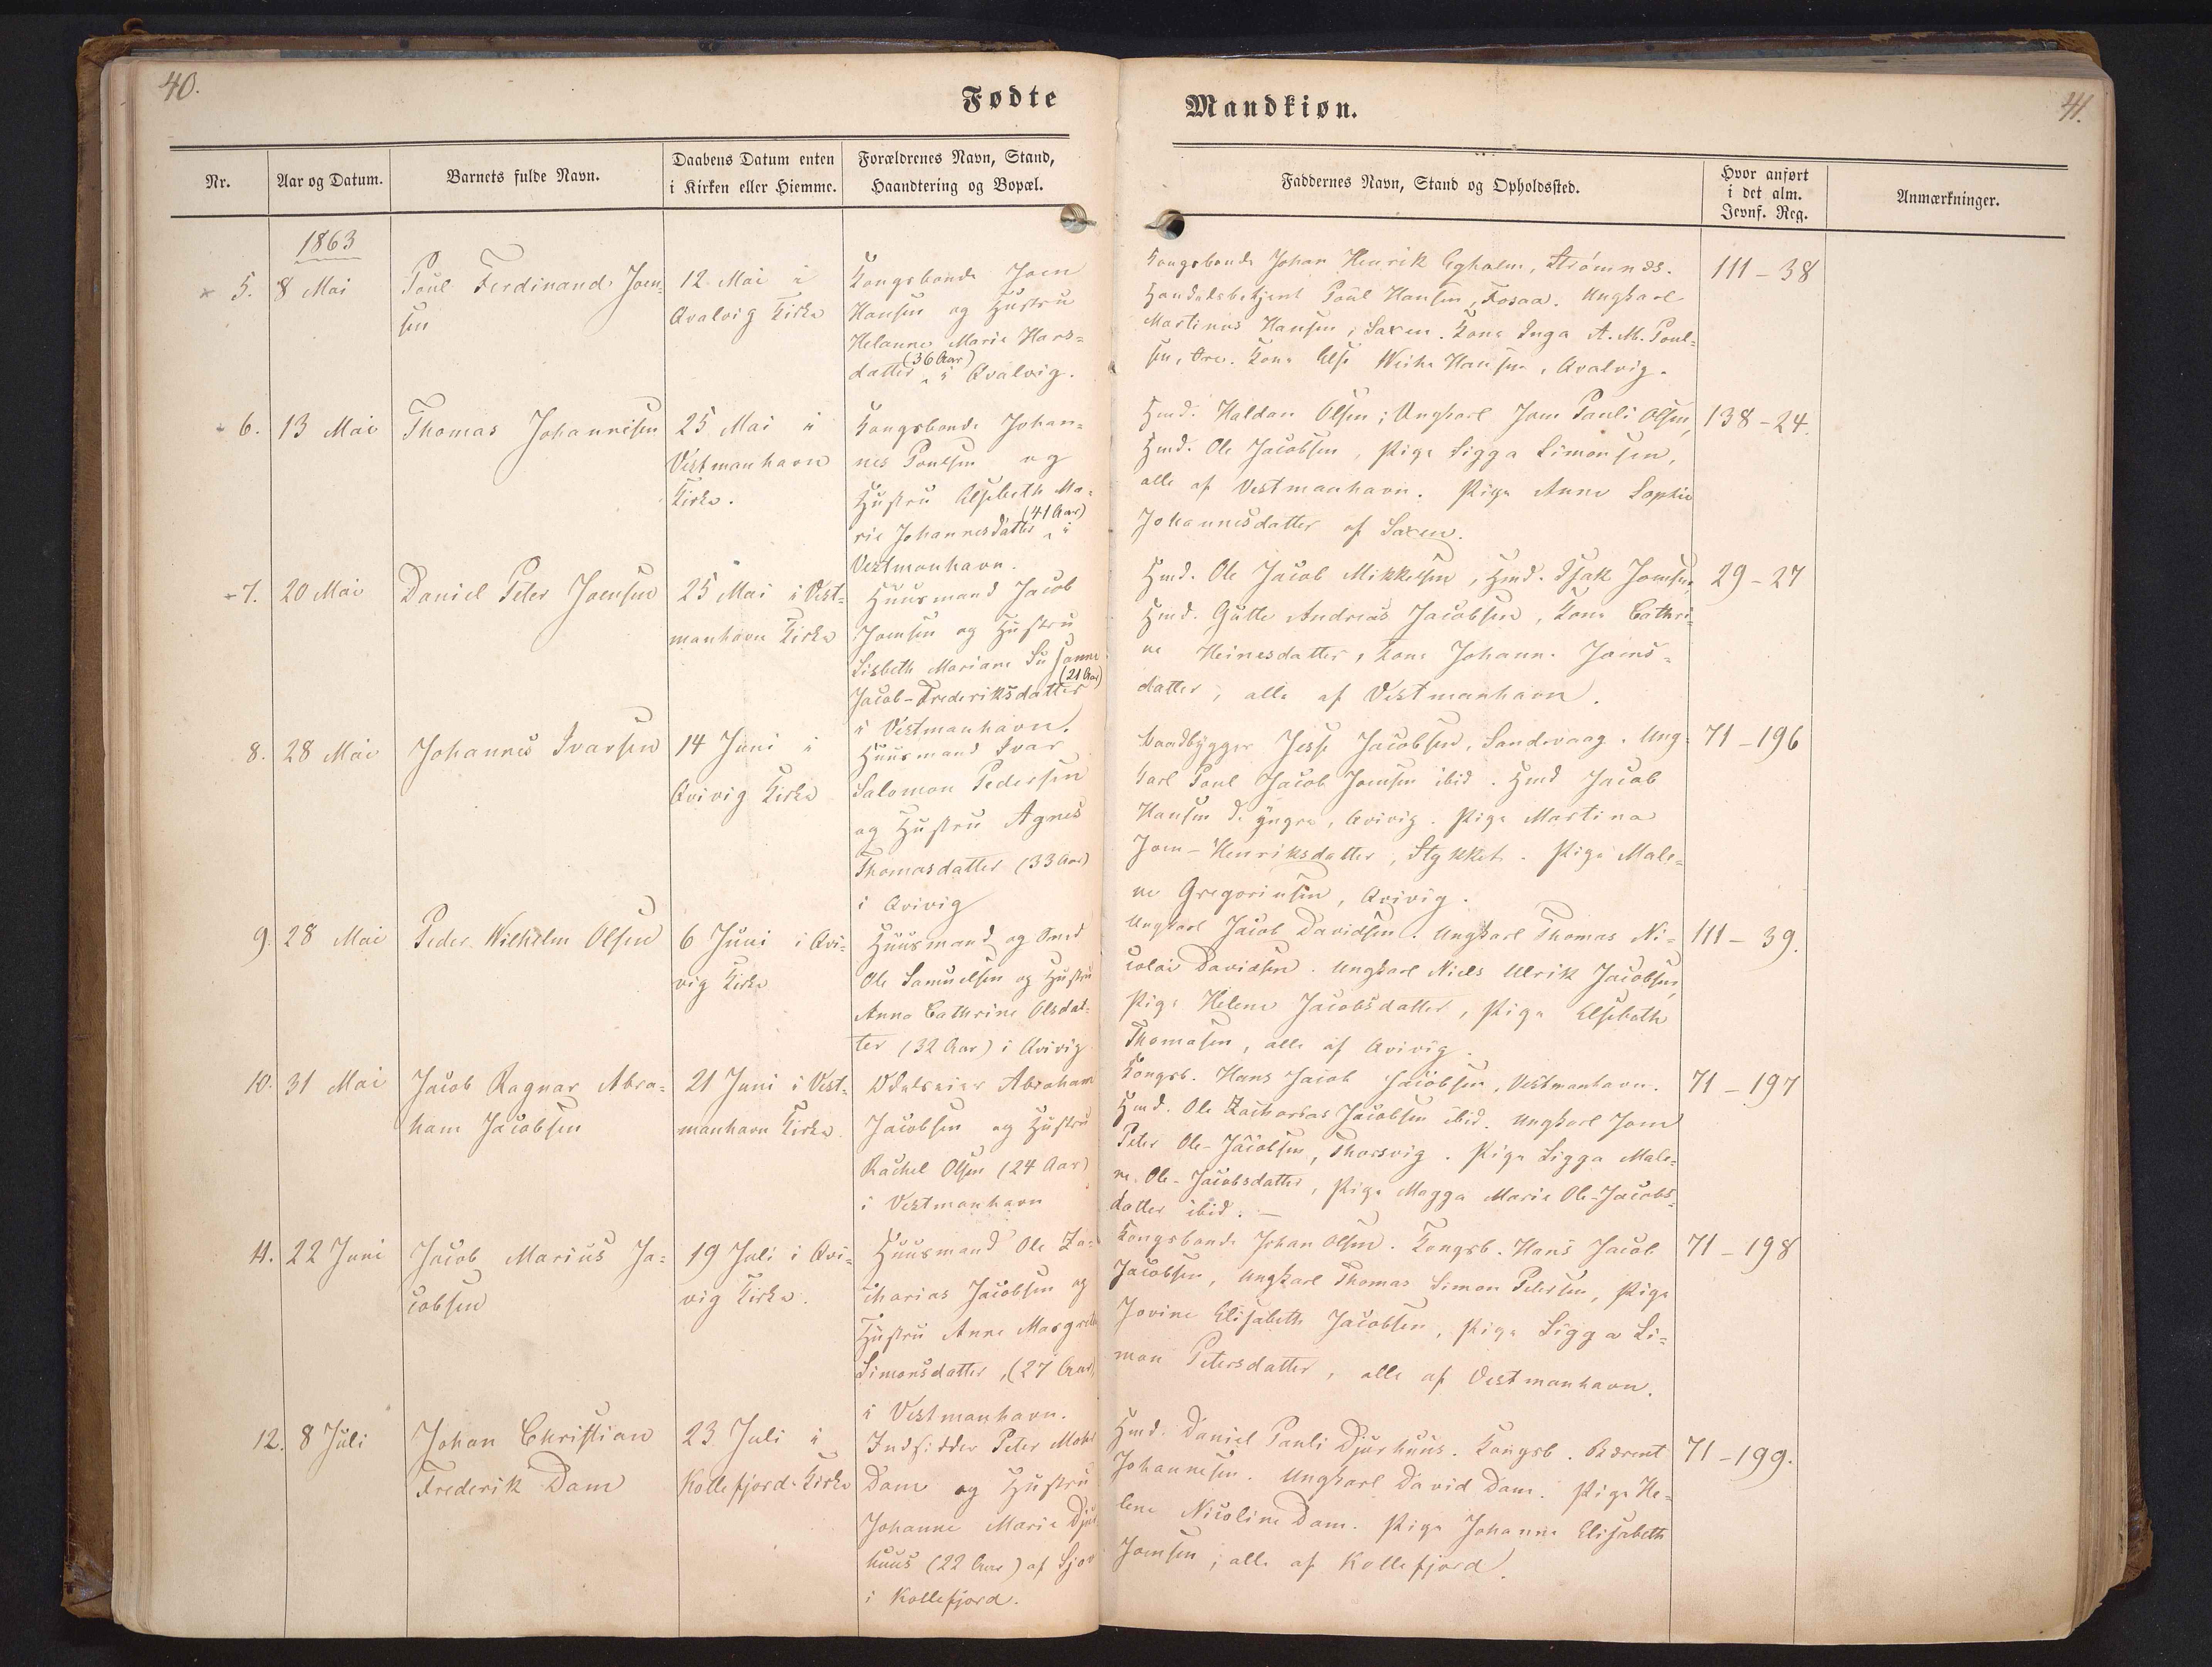 40.
Fødte
Nr.
Aar og Datum.
Barnets fulde Navn.
Daabens Datum enten
i Kirken eller Hiemme.
Forældrenes Navn, Stand,
Haandtering og Bopæl.
1863
5.
8 Mai
Poul Ferdinand Joen-
sen
12 Mai i
Qvalvig Kirke
Kongsbonde Joen
Hansen og Hustru
Helanne Marie Hans-
(36 Aar)
datter i Qvalvig.
6.
13 Mai
Thomas Johannesen
25 Mai i
Vestmanhavn
Kirke.
Kongsbonde Johan-
nes Poulsen og
Hustru Elsebeth Ma-
(41 Aar)
rie Johannesdatter i
Vestmanhavn.
7.
20 Mai
Daniel Peter Joensen
25 Mai i Vest-
manhavn Kirke
Huusmand Jacob
Joensen og Hustru
Lisbeth Mariane Susanne
(21 Aar)
Jacob-Frederiksdatter
i Vestmanhavn.
8.
28 Mai
Johannes Ivarsen
14 Juni i
Qvivig Kirke
Huusmand Ivar
Salomon Pedersen
og Hustru Agnes
Thomasdatter (33 Aar)
i Qvivig
9.
28 Mai
Peder Wilhelm Olsen
6 Juni i Qvi-
vig Kirke
Huusmand og Smed
Ole Samuelsen og Hustru
Anna Cathrine Olsdat-
ter (32 Aar) i Qvivig
10.
31 Mai
Jacob Ragnar Abra-
ham Jacobsen
21 Juni i Vest-
manhavn Kirke.
Odelseier Abraham
Jacobsen og Hustru
Rachel Olsen (24 Aar)
i Vestmanhavn
11.
22 Juni
Jacob Marius Ja-
cobsen
19 Juli i Qvi-
vig Kirke.
Huusmand Ole Za-
charias Jacobsen og
Hustru Anne Margrethe
Simonsdatter, (27 Aar)
i Vestmanhavn.
12.
8 Juli
Johan Christian
Frederik Dam
23 Juli i
Kollefjord Kirke
Indsidder Peter Mohr
Dam og Hustru
Johanne Marie Djur
huus (22 Aar) af Sjov
i Kollefjord.
Mandkiøn.
41.
Faddernes Navn, Stand og Opholdssted.
Hvor anført
i det alm.
Jevnf. Reg.
Anmærkninger.
Kongsbonde Johan Henrik Egholm, Strömnæs.
Handelsbetjent Poul Hansen, Fosaa. Ungkarl
Martinus Hansen, Saxen. Kone Inga A. M. Poul-
sen, Kone Else Hansen, Qvalvig.
111 - 38
Hmd. Haldan Olsen; Ungkarl Joen Pauli Olsen,
Hmd. Ole Jacobsen, Pige Sigga Simonsen,
alle af Vestmanhavn. Pige Anne Sophie
Johannesdatter af Saxen.
138 - 24.
Hmd. Ole Jacob Mikkelsen, Hmd. Isak Joensen,
Hmd. Gutte Andreas Jacobsen, Kone Cathri-
ne Heinesdatter, Kone Johanne Joens-
datter, alle af Vestmanhavn.
29 - 27
Baadbygger Jesse Jacobsen, Sandevaag. Ung-
karl Poul Jacob Joensen ibid. Hmd Jacob
Hansen d. yngre, Qvivig. Pige Martina
Joen-Henriksdatter, Stykket. Pige Male-
ne Gregoriusen, Qvivig.
71 - 196
Ungkarl Jacob Davidsen. Ungkarl Thomas Ni-
colai Davidsen. Ungkarl Niels Ulrik Jacobsen,
Pige Helene Jacobsdatter, Pige Elsebeth
Thomasen, alle af Qvivig.
111 - 39.
Kongsb. Hans Jacob Jacobsen, Vestmanhavn.
Hmd. Ole Zacharias Jacobsen ibid. Ungkarl Joen
Peter Ole-Jacobsen, Thorsvig. Pige Sigga Male-
ne Ole-Jacobsdatter, Pige Magga Marie Ole-Jacobs-
datter ibid. -
71 - 197
Kongsbonde Johan Olsen. Kongsb. Hans Jacob
Jacobsen, Ungkarl Thomas Simon Petersen, Pige
Jovine Elisabeth Jacobsen, Pige Sigga Si-
mon Petersdatter, alle af Vestmanhavn.
71 - 198
Hmd. Daniel Pauli Djurhuus. Kongsb. Berent
Johannesen. Ungkarl David Dam. Pige He-
lene Nicoline Dam. Pige Johanne Elisabeth
Joensen, alle af Kollefjord.
71 - 199.